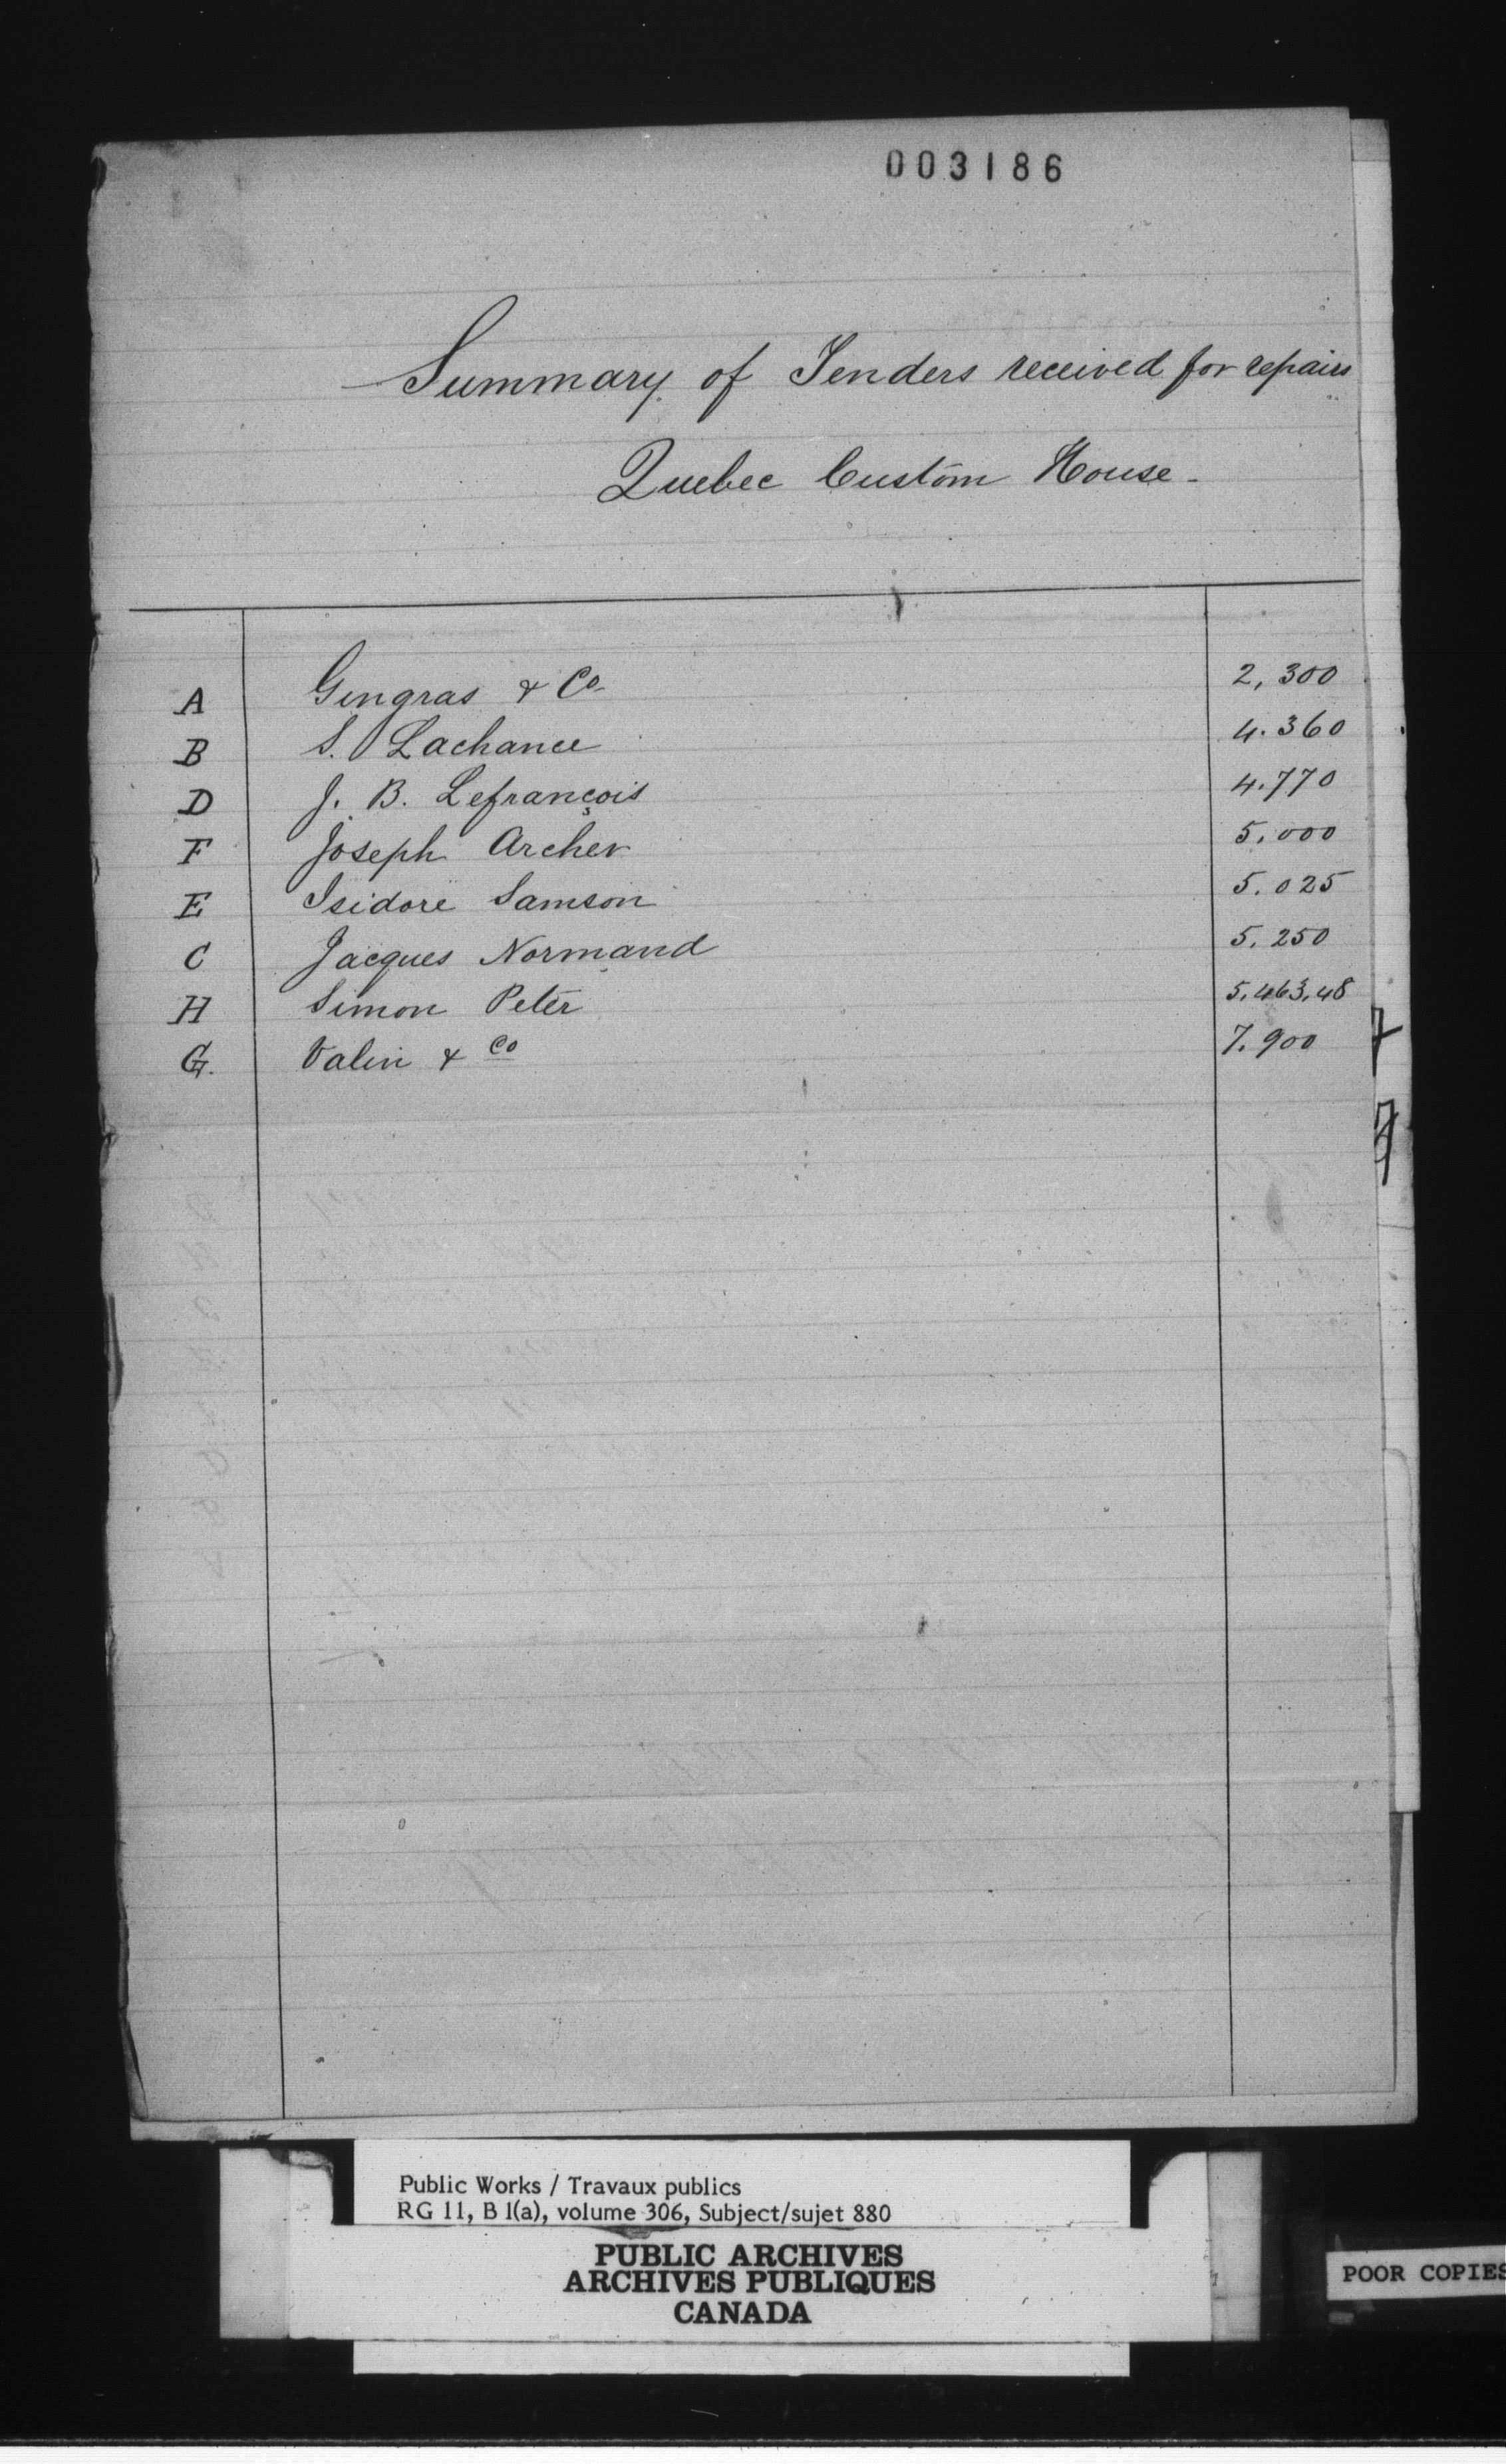 003186
Summary of Tenders received for repairs
Quebec Custom House -
A Gingras & Co 2,300
B S. Lachance 4.360
D J. B. Lefrançois 4.770
F Joseph Archer 5.000
E Isidore Samson 5.025
C Jacques Normand 5.250
H Simon Peter 5.463.48
G. Valin & Co 7.900
Public Works / Travaux publics
RG 11, B 1(a), volume 306, Subject/sujet 880
PUBLIC ARCHIVES
ARCHIVES PUBLIQUES
CANADA
POOR COPIES